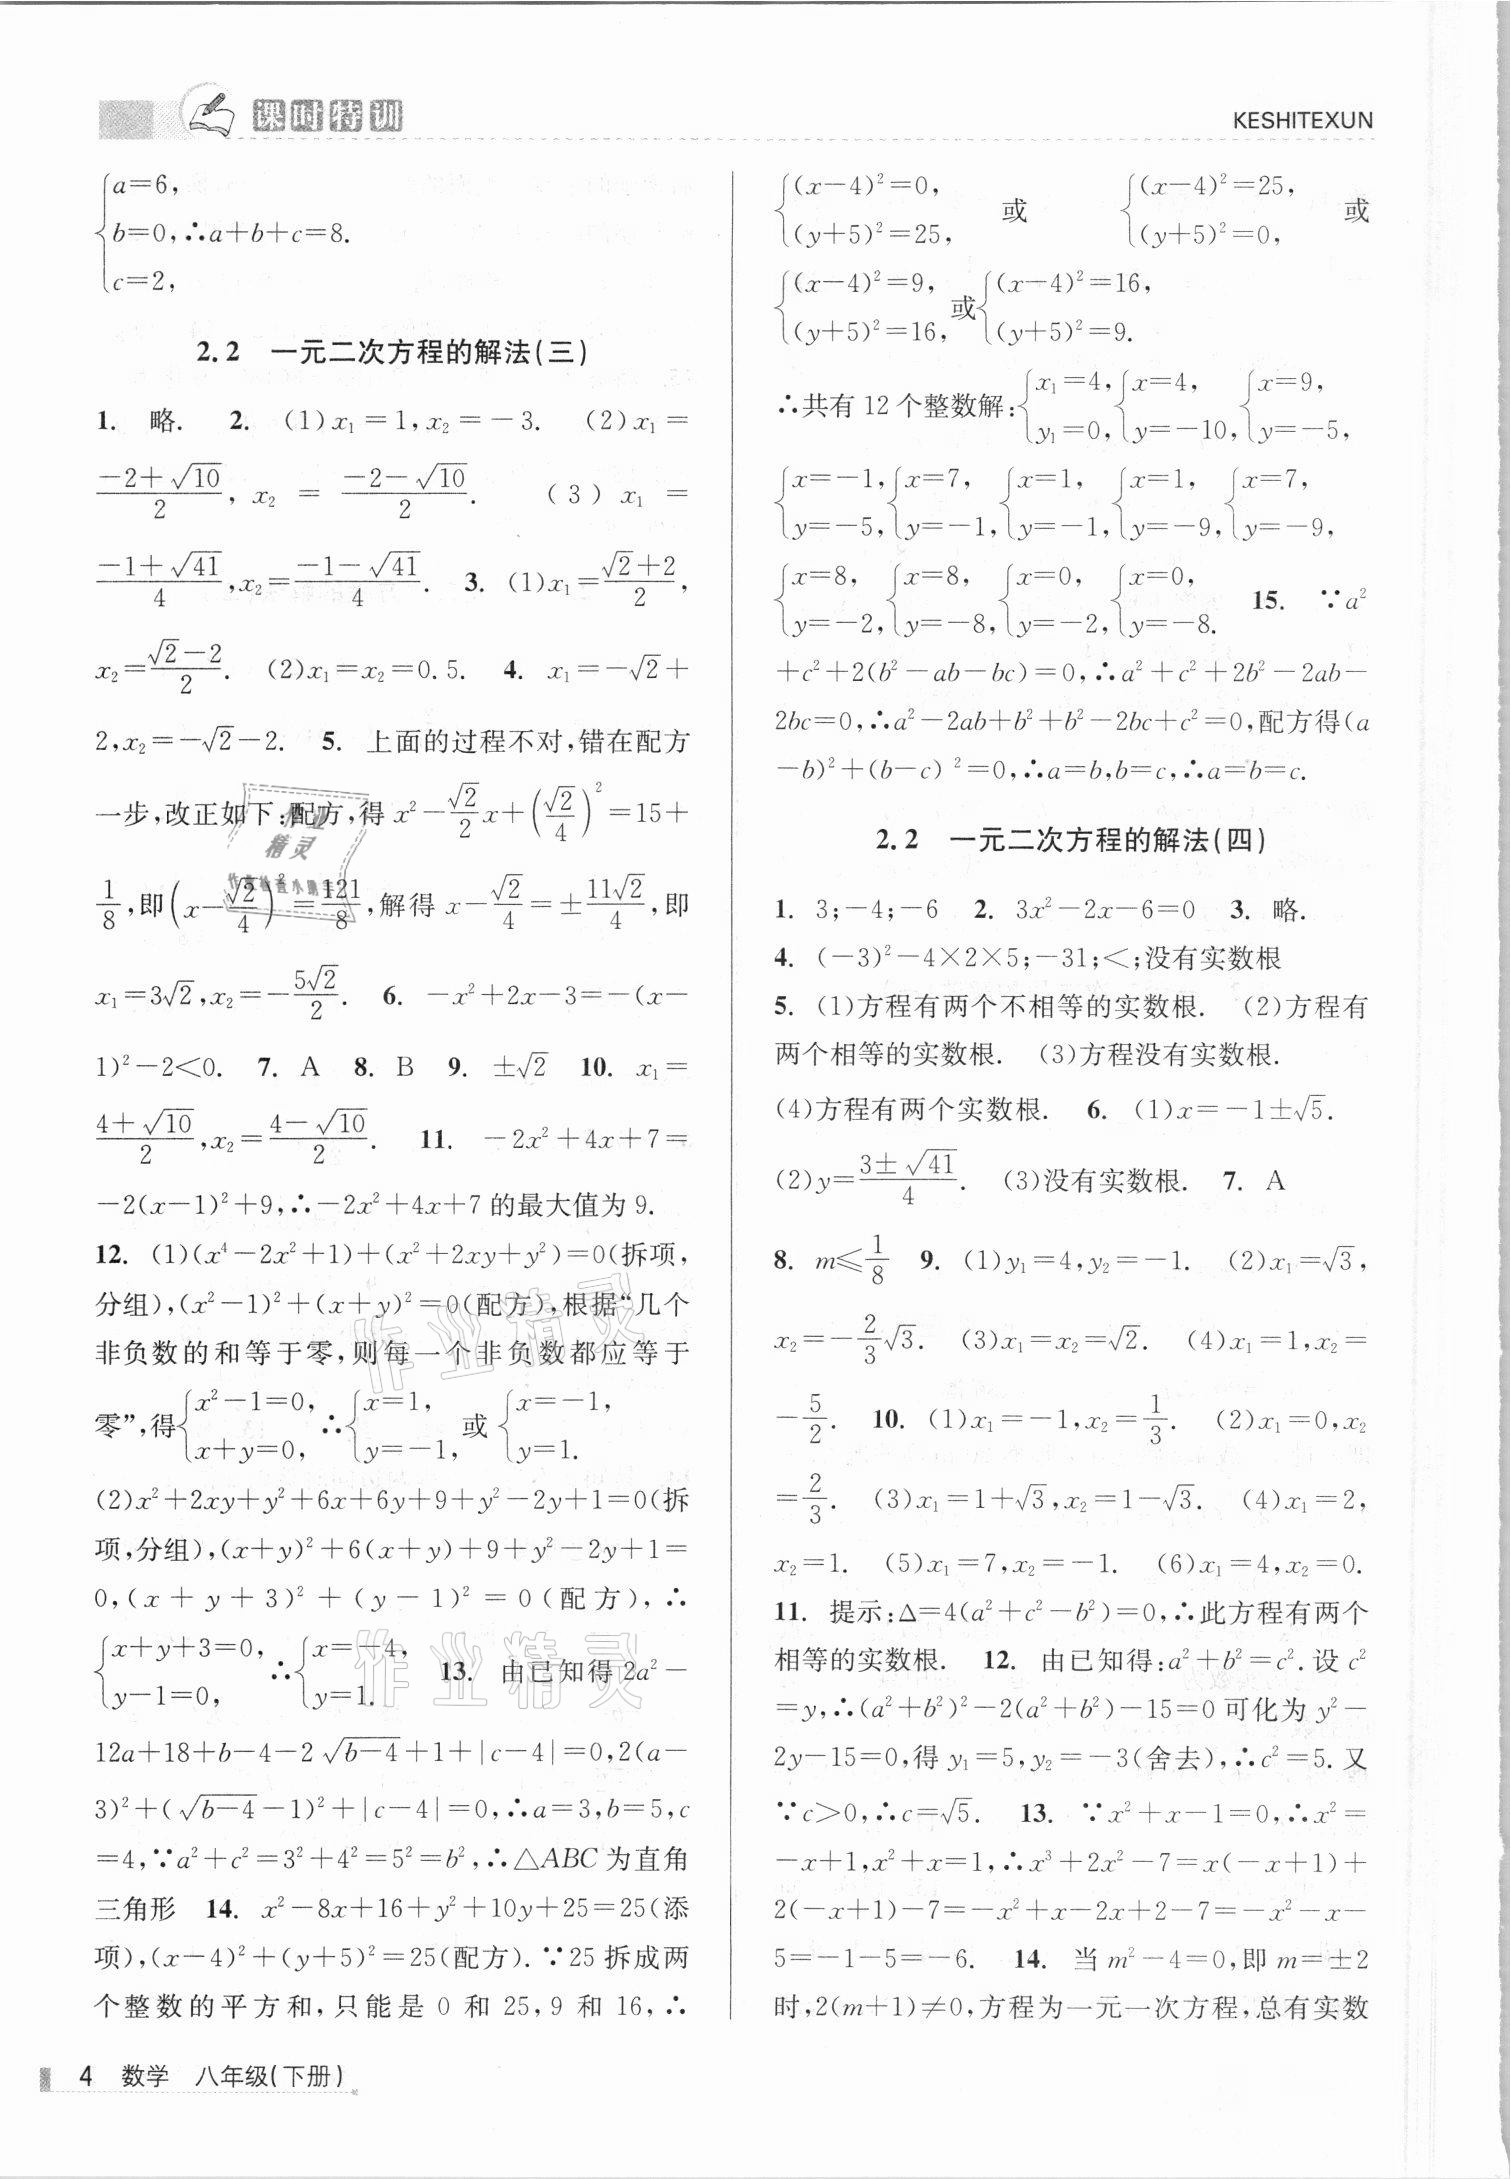 课时特训
KESHITEXUN
{a=6,
b=0, ∴a+b+c=8.
c=2,
2.2 一元二次方程的解法(三)
1. 略. 2. (1)x₁=1,x₂=-3. (2)x₁=
(-2+√10)/2, x₂=(-2-√10)/2. (3)x₁=
(-1+√41)/4,x₂=(-1-√41)/4. 3. (1)x₁=(√2+2)/2,
x₂=(√2-2)/2. (2)x₁=x₂=0.5. 4. x₁=-√2+
2,x₂=-√2-2. 5. 上面的过程不对,错在配方
一步,改正如下:配方,得x²-(√2/2)x+(√2/4)²=15+
1/8,即(x-√2/4)²=121/8,解得x-√2/4=±11√2/4,即
x₁=3√2,x₂=-5√2/2. 6. -x²+2x-3=-(x-
1)²-2<0. 7. A 8. B 9. ±√2 10. x₁=
(4+√10)/2,x₂=(4-√10)/2. 11. -2x²+4x+7=
-2(x-1)²+9,∴-2x²+4x+7的最大值为9.
12. (1)(x⁴-2x²+1)+(x²+2xy+y²)=0(拆项,
分组),(x²-1)²+(x+y)²=0(配方),根据“几个
非负数的和等于零,则每一个非负数都应等于
零”,得{x²-1=0, x+y=0, ∴{x=1, y=-1, 或{x=-1, y=1.
(2)x²+2xy+y²+6x+6y+9+y²-2y+1=0(拆
项,分组),(x+y)²+6(x+y)+9+y²-2y+1=
0,(x+y+3)²+(y-1)²=0(配方),∴
{x+y+3=0, y-1=0, ∴{x=-4, y=1. 13. 由已知得2a²-
12a+18+b-4-2√(b-4)+1+|c-4|=0,2(a-
3)²+(√(b-4)-1)²+|c-4|=0,∴a=3,b=5,c
=4,∵a²+c²=3²+4²=5²=b²,∴△ABC为直角
三角形 14. x²-8x+16+y²+10y+25=25(添
项),(x-4)²+(y+5)²=25(配方).∵25拆成两
个整数的平方和,只能是0和25,9和16,∴
{(x-4)²=0, (y+5)²=25, 或 {(x-4)²=25, (y+5)²=0, 或
{(x-4)²=9, (y+5)²=16, 或{(x-4)²=16, (y+5)²=9.
∴共有12个整数解:{x₁=4, y₁=0, {x=4, y=-10, {x=9, y=-5,
{x=-1, y=-5, {x=7, y=-1, {x=1, y=-1, {x=1, y=-9, {x=7, y=-9,
{x=8, y=-2, {x=8, y=-8, {x=0, y=-2, {x=0, y=-8. 15. ∵a²
+c²+2(b²-ab-bc)=0,∴a²+c²+2b²-2ab-
2bc=0,∴a²-2ab+b²+b²-2bc+c²=0,配方得(a
-b)²+(b-c)²=0,∴a=b,b=c,∴a=b=c.
2.2 一元二次方程的解法(四)
1. 3;-4;-6 2. 3x²-2x-6=0 3. 略.
4. (-3)²-4×2×5;-31;<;没有实数根
5. (1)方程有两个不相等的实数根. (2)方程有
两个相等的实数根. (3)方程没有实数根.
(4)方程有两个实数根. 6. (1)x=-1±√5.
(2)y=(3±√41)/4. (3)没有实数根. 7. A
8. m≤1/8 9. (1)y₁=4,y₂=-1. (2)x₁=√3,
x₂=-2/3√3. (3)x₁=x₂=√2. (4)x₁=1,x₂=
-5/2. 10. (1)x₁=-1,x₂=1/3. (2)x₁=0,x₂
=2/3. (3)x₁=1+√3,x₂=1-√3. (4)x₁=2,
x₂=1. (5)x₁=7,x₂=-1. (6)x₁=4,x₂=0.
11. 提示:Δ=4(a²+c²-b²)=0,∴此方程有两个
相等的实数根. 12. 由已知得:a²+b²=c².设c²
=y,∴(a²+b²)²-2(a²+b²)-15=0可化为y²-
2y-15=0,得y₁=5,y₂=-3(舍去),∴c²=5.又
∵c>0,∴c=√5. 13. ∵x²+x-1=0,∴x²=
-x+1,x²+x=1,∴x³+2x²-7=x(-x+1)+
2(-x+1)-7=-x²+x-2x+2-7=-x²-x-
5=-1-5=-6. 14. 当m²-4=0,即m=±2
时,2(m+1)≠0,方程为一元一次方程,总有实数
4 数学 八年级(下册)
作业精灵
作业精灵
作业精灵